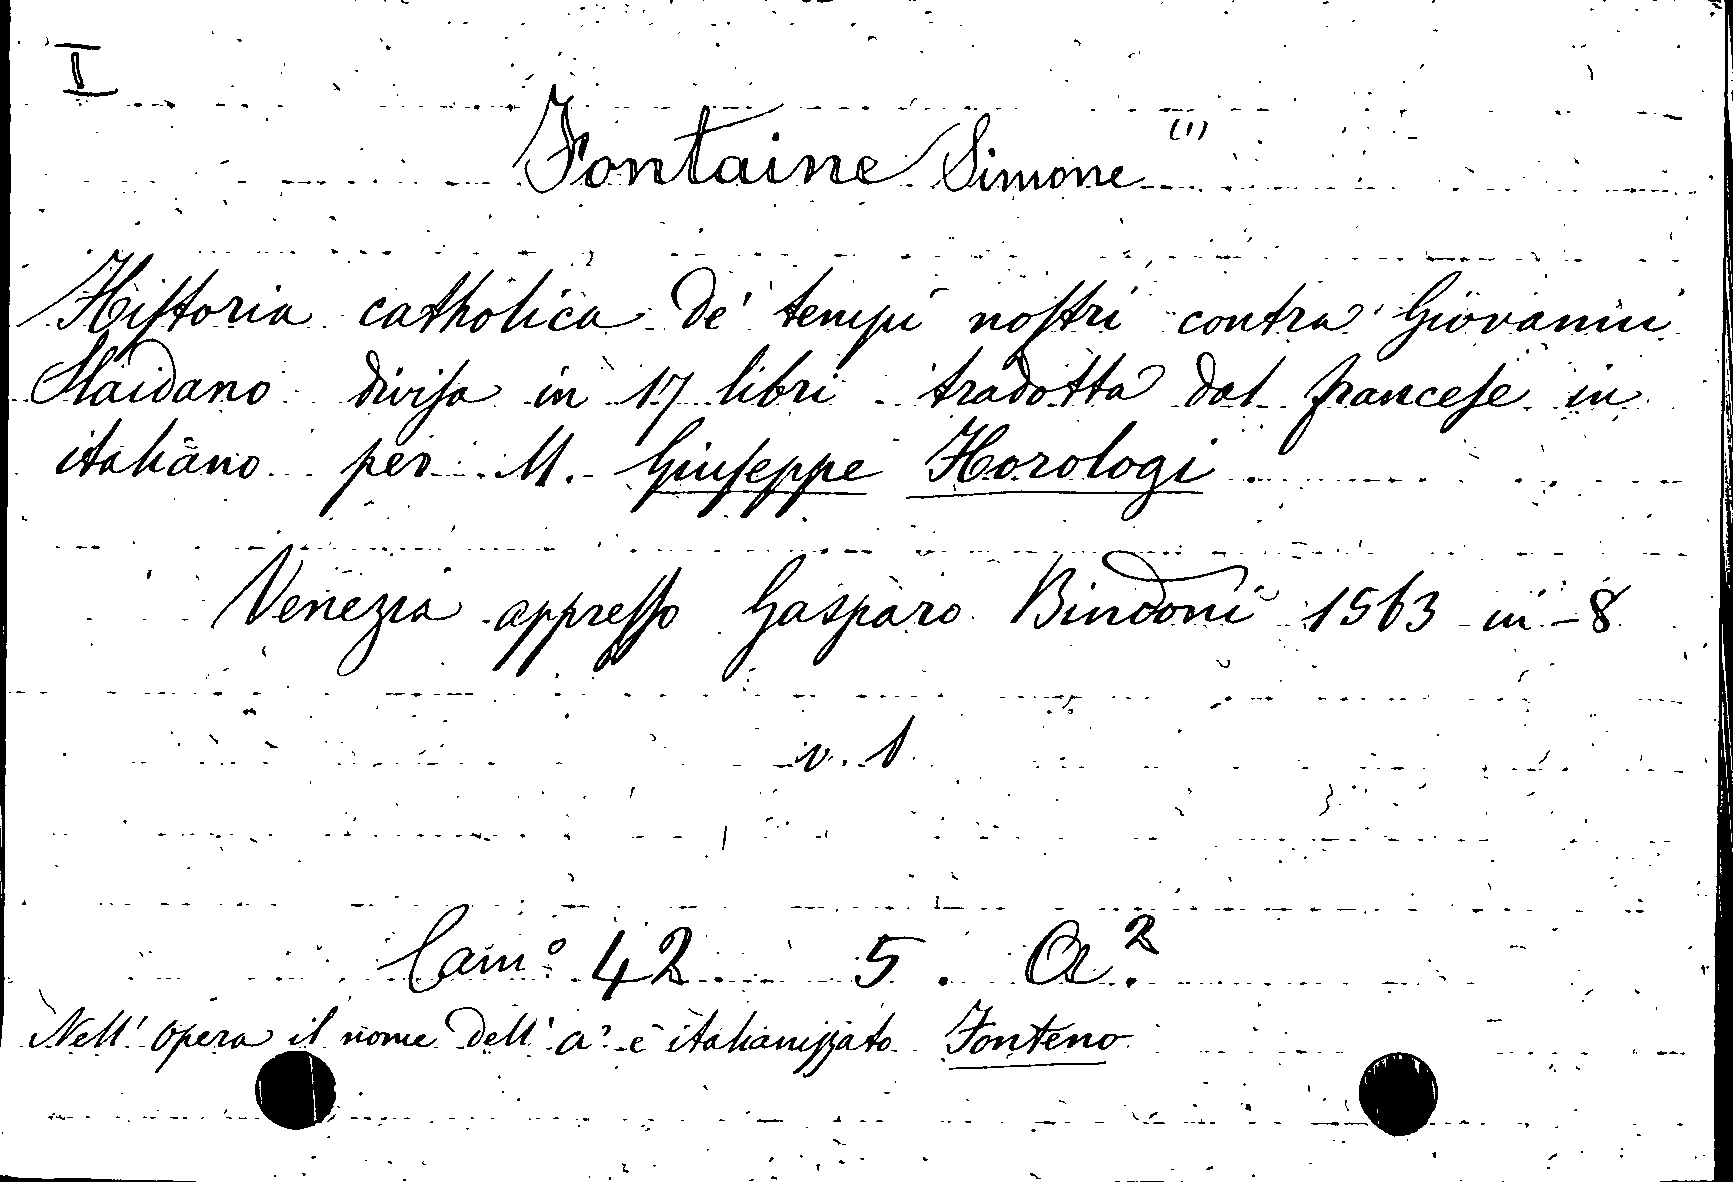 I
Fontaine Simone (1)
Hiſtoria catholica de' tempi noſtri contra Giovanni
Slaidano diviſa in 17 libri tradotta dal franceſe in
italiano per M. Giuſeppe Horologi
Venezia appreſſo Gasparo Bindoni 1563 in-8
v. 1
Cam° 42. 5. A.²
Nell' opera il nome dell' a.° è italianizzato Fonteno